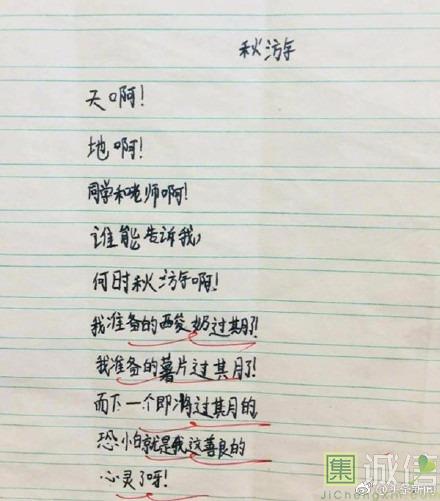 秋游
天啊!
地啊!
同学和老师啊!
谁能告诉我,
何时秋游啊!
我准备的酸奶过期了!
我准备的薯片过其月了!
而下一个即将过其月的
恐怕就是我这善良的
心灵了呀!
集 诚信
JiChengxin.c